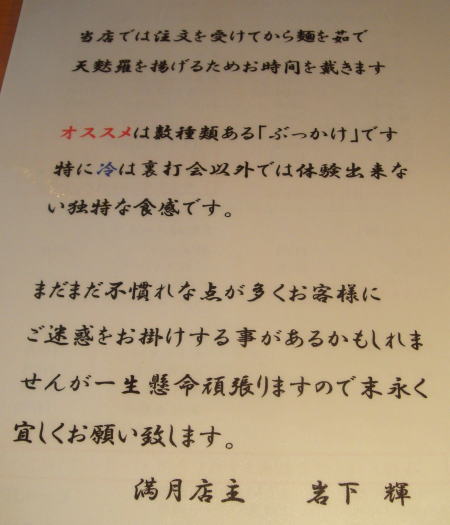 当店では注文を受けてから麺を茹で
天麩羅を揚げるためお時間を戴きます
オススメは数種類ある「ぶっかけ」です
特に冷は裏打会以外では体験出来な
い独特な食感です。
まだまだ不慣れな点が多くお客様に
ご迷惑をお掛けする事があるかもしれま
せんが一生懸命頑張りますので末永く
宜しくお願い致します。
満月店主 岩下 輝